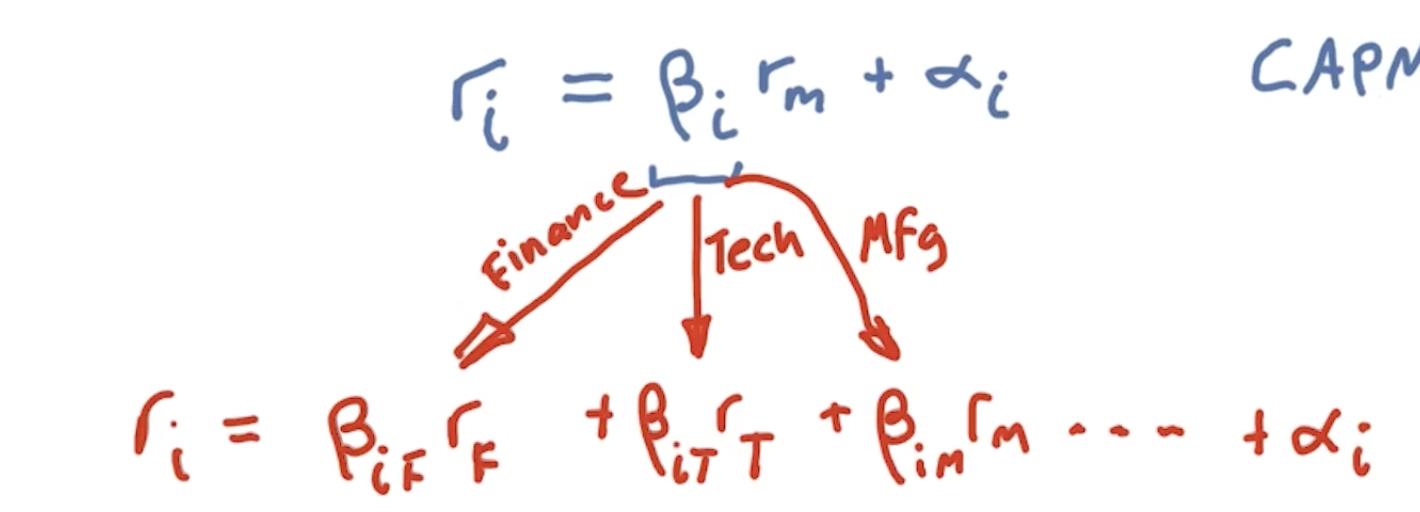 rᵢ = βᵢ rₘ + αᵢ CAPM
Finance Tech Mfg
rᵢ = β_iF r_F + β_iT r_T + β_iM r_m ---- + αᵢ